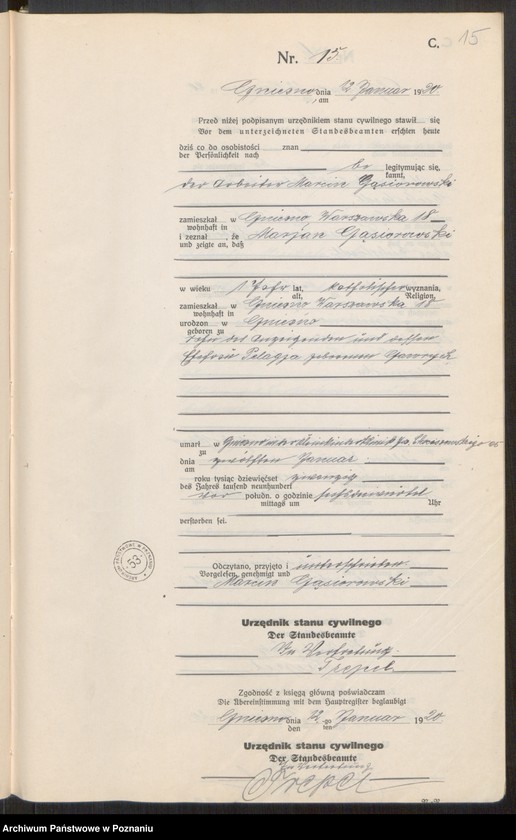 C. 15
Nr. 15
Gniezno dnia 12 Januar 1920
am
Przed niżej podpisanym urzędnikiem stanu cywilnego stawił się
Vor dem unterzeichneten Standesbeamten erschien heute
dziś co do osobistości znan
der Persönlichkeit nach
legitymując się,
kannt,
der Arbeiter Marcin Gąsiorowski
zamieszkał w Gniezno, Warszawska 18
wohnhaft in
i zeznał , że Marjan Gąsiorowski
und zeigte an, daß
w wieku 1 Jahr lat, katholischer wyznania,
alt, Religion
zamieszkał w Gniezno Warszawska 18
wohnhaft in
urodzon w Gniezno
geboren zu
Sohn des Anzeigenden und dessen
Ehefrau Pelagja geborenen
umarł w
zu
dnia zwölften Januar
am
roku tysiąc dziewięćset zwanzig
des Jahres tausend neunhundert
vor połudn. o godzinie
mittags um Uhr
verstorben sei.
Odczytano, przyjęto i unterschrieben
Vorgelesen, genehmigt und
Marcin Gąsiorowski
Urzędnik stanu cywilnego
Der Standesbeamte
In Vertretung
Trepel
Zgodność z księgą główną poświadczam
Die Übereinstimmung mit dem Hauptregister beglaubigt
Gniezno dnia 12 go Januar 1920
den ten
Urzędnik stanu cywilnego
Der Standesbeamte
In Vertretung
Trepel
53
Archiwum Państwowe w Poznaniu